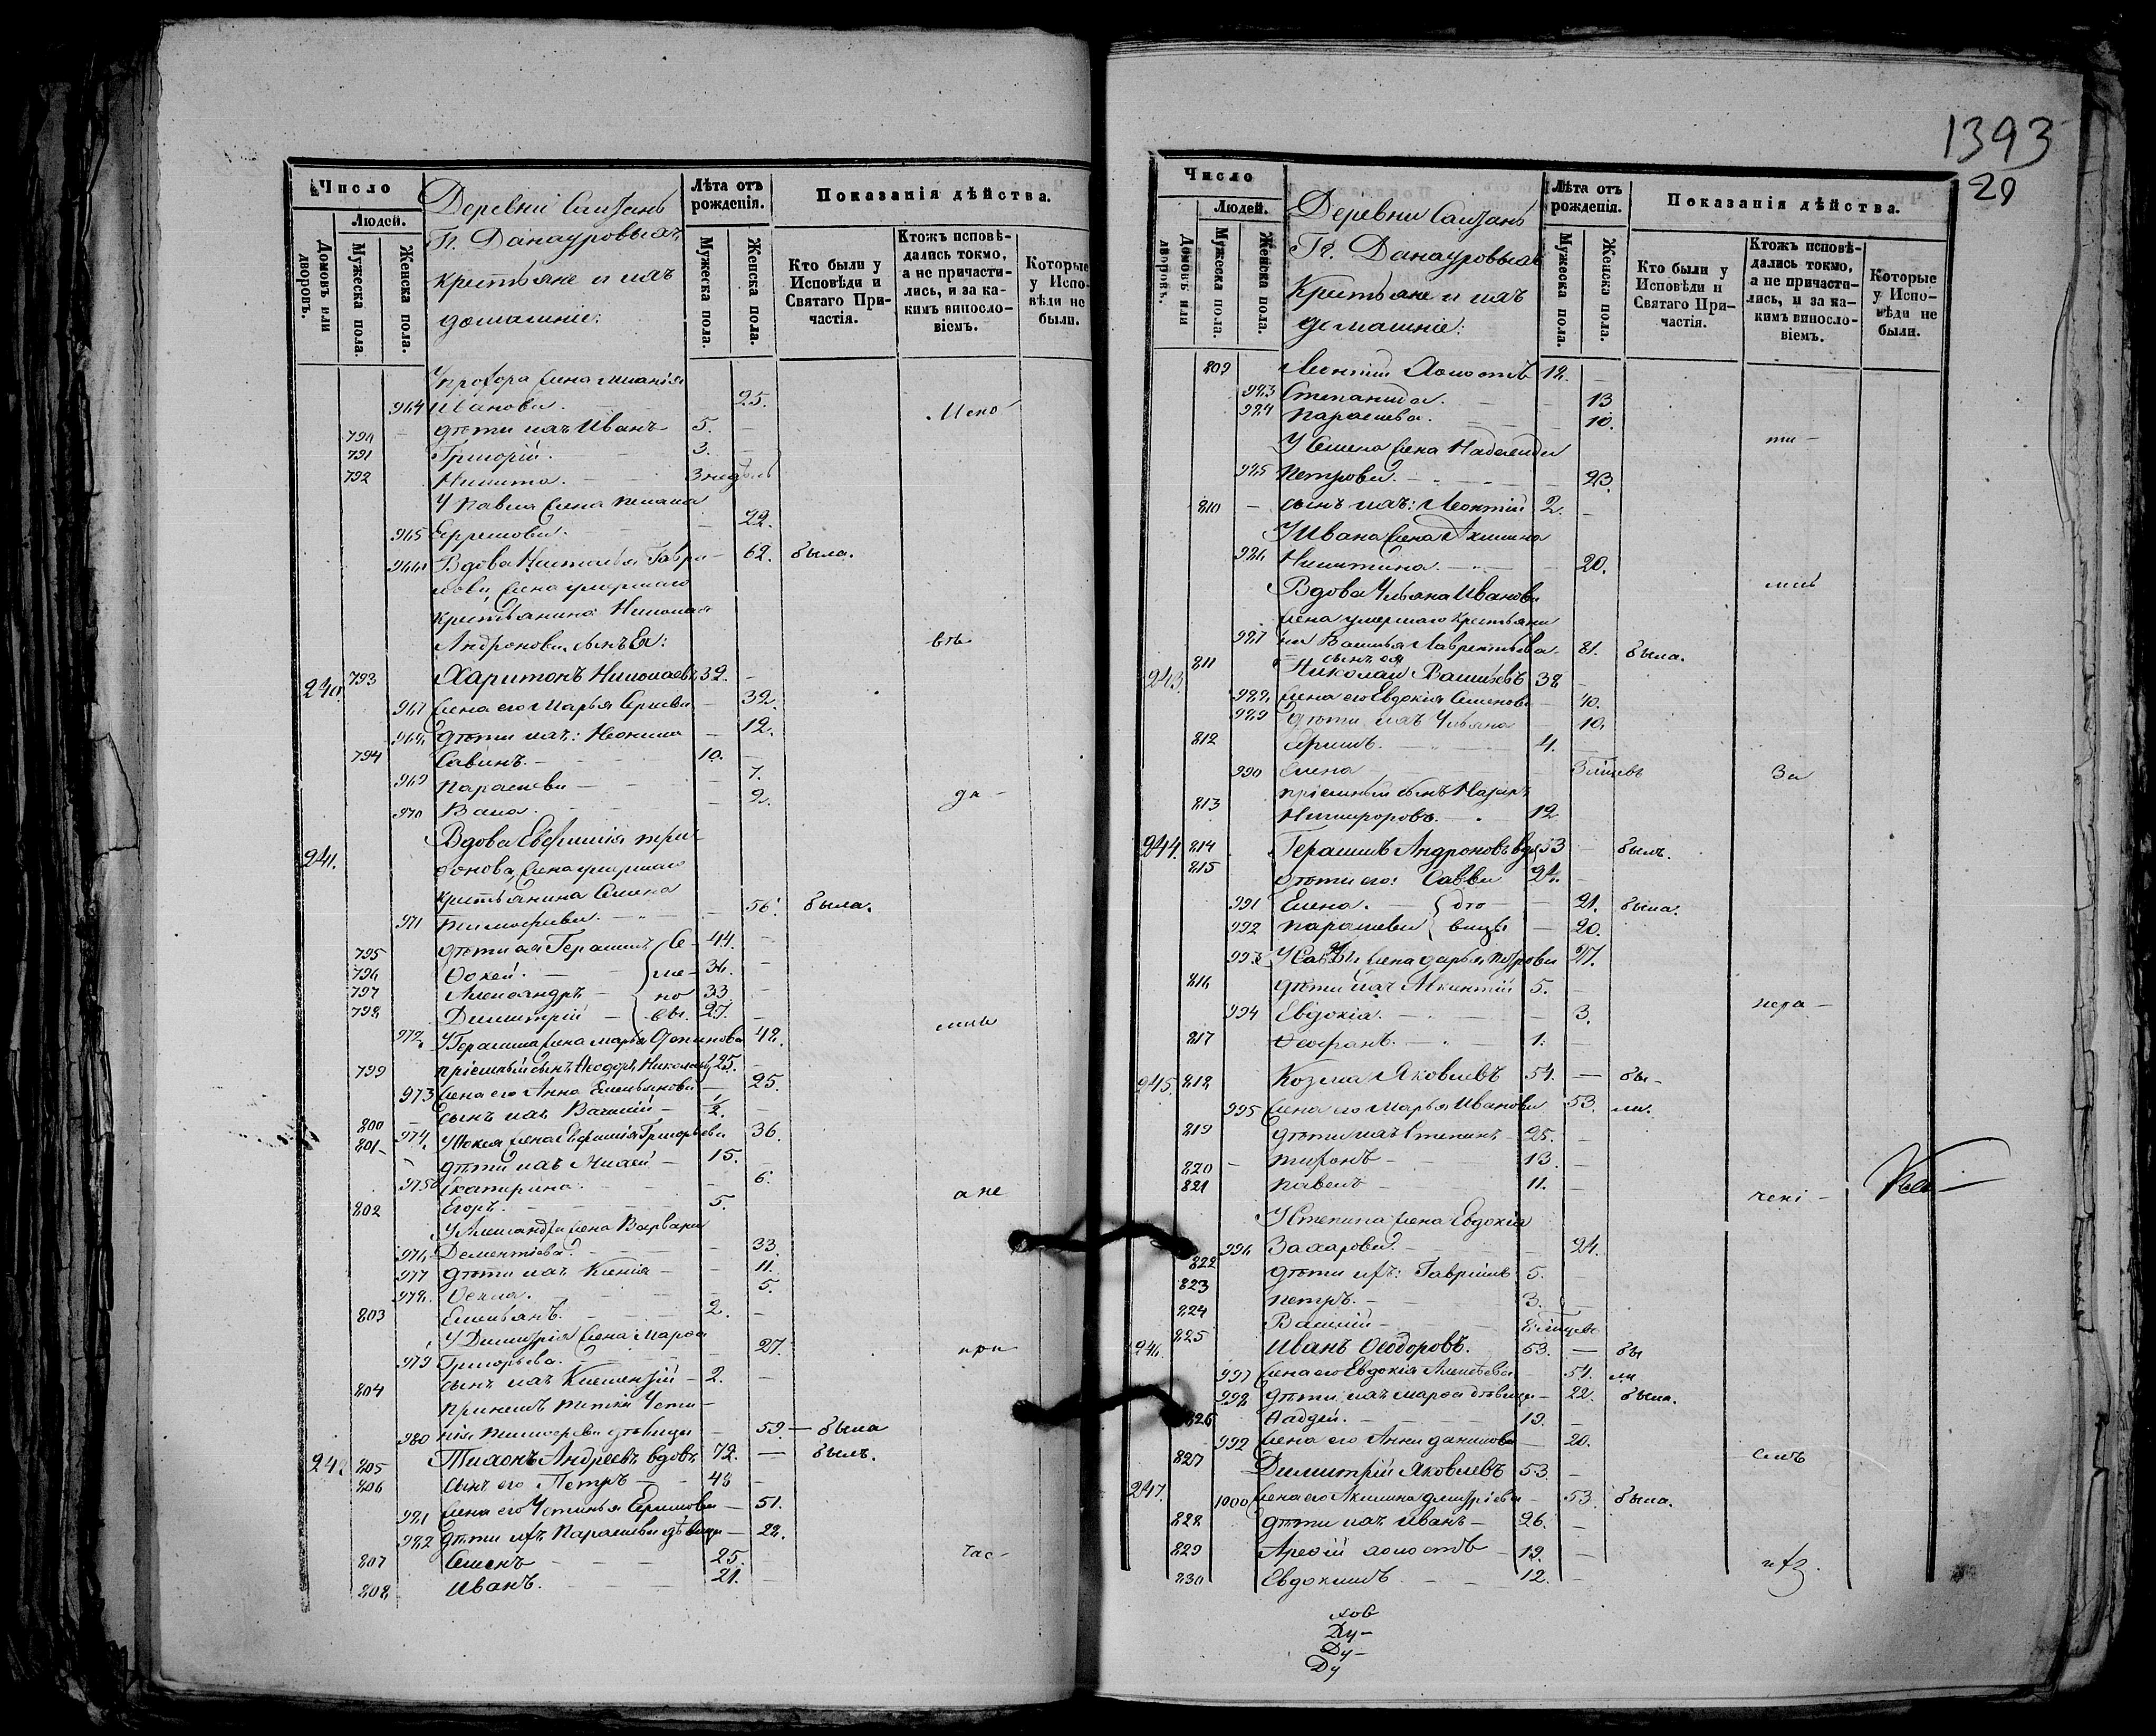 Число
Людей.
Домовъ или дворовъ.
Мужеска пола.
Женска пола.
Деревни
Гг. Данауровыхъ
крестьяне и ихъ
домашніе:
Лѣта отъ рожденія.
Мужеска пола.
Женска пола.
Показанія дѣйства.
Кто были у Исповѣди и Святаго При-частія.
Ктожъ исповѣ-дались токмо, а не причасти-лись, и за ка-кимъ винословіемъ.
Которые у Испо-вѣди не были.
У Прохора жена
964 Иванова. 25.
790 дѣти ихъ Иванъ 5.
791 Григорій. 3.
792 Никита. 3 недѣль
У Павла жена
965 Ефремова. 22.
966 Вдова Наталья Гаври- 62. была.
лова, жена умершаго
крестьянина Николая
Андронова, сынъ ея:
240. 793 Харитонъ Николаевъ 32.
967 жена его Марья Сергѣева 32.
968 дѣти ихъ: 12.
794 Савинъ. 10.
969 Параскева 7.
970 2. да-
241. Вдова Евфимія Три-
фонова, жена умершаго
крестьянина Семена
971 Тимофеева. 56. была.
795 дѣти ея Герасимъ Се- 44.
796 Фокей. ме- 36.
797 Александръ но 33
798 Димитрій вы. 27.
972 У Герасима жена Марья 42.
799 пріемный сынъ Ѳеодоръ Николаевъ 25.
973 жена его Анна Емельянова 25.
800 сынъ ихъ Василій ½.
801 974 У Фокея жена Евфимія Григорьева 36.
дѣти ихъ 15.
975 Екатерина. 6.
802 Егоръ. 5. а не
У Александра жена Варвара
976 Дементіева. 33.
977 дѣти ихъ Ксенія 11.
978 Ѳекла. 5.
803 Емельянъ. 2.
У Димитрія жена Марѳа
979 Григорьева. 27. при
804 сынъ ихъ Климентій 2.
980 Тимофеева дѣвица 59. была
242 805 Тихонъ Андреевъ вдовъ 72. былъ.
806 сынъ его Петръ 48
981 жена его Устинья Ефимова 51.
982 дѣти ихъ Параскева дѣвица 22.
807 Семенъ 25. час-
808 Иванъ. 21.
1393
29
Число
Людей.
Домовъ или дворовъ.
Мужеска пола.
Женска пола.
Деревни
Гг. Данауровыхъ
Крестьяне и ихъ
домашніе:
Лѣта отъ рожденія.
Мужеска пола.
Женска пола.
Показанія дѣйства.
Кто были у Исповѣди и Святаго При-частія.
Ктожъ исповѣ-дались токмо, а не причасти-лись, и за ка-кимъ винословіемъ.
Которые у Испо-вѣди не были.
809 Леонтій Холостъ 12.
983 Степанида. 13
984 Параскева. 10.
У Семена жена Надежда ти-
985 Петрова. 23.
810 сынъ ихъ: Леонтій 2.
У Ивана жена Акилина
986 Никитина. 20.
Вдова Ульяна Иванова лись
жена умершаго крестьяни
987 на Василья Лаврентьева. 81. была.
сынъ ея
243. 811 Николай Васильевъ 38
988 жена его Евдокія Семенова 40.
989 дѣти ихъ Ульяна 10.
812 Ефимъ. 4.
990 Елена 3 мѣсяцевъ За
813 пріемный сынъ Назаръ
Никифоровъ. 12
244. 814 Герасимъ Андроновъ вдов 53 былъ.
815 дѣти его: Савва 24.
991 Елена. дѣ 21. была.
992 Параскева вицы 20.
993 У Саввы жена Дарья Петрова 27.
816 дѣти ихъ 5.
994 Евдокія. 3. нера-
817 1.
245. 818 Козма Яковлевъ 54. бы-
995 жена его Марья Иванова 53. ли.
819 дѣти ихъ Степанъ 25.
820 Тихонъ 13.
821 Павелъ 11. чені-
У Степана жена Евдокія
996 Захарова. 24.
822 дѣти ихъ: Гавріилъ 5.
823 Петръ. 3.
824 Василій
246. 825 Иванъ Ѳеодоровъ. 53. бы
997 жена его Евдокія Алексѣева 54. ли
998 дѣти ихъ Марѳа дѣвица 22. была.
826 Фаддей. 19.
999 жена его Анна Данилова 20. емъ
247. 827 Димитрій Яковлевъ 53.
1000 жена его Акилина Дмитріева 53. была.
828 дѣти ихъ Иванъ 26.
829 Арефій холостъ 19. ихъ.
830 Евдокимъ 12.
Ду-
Ду-
Ду